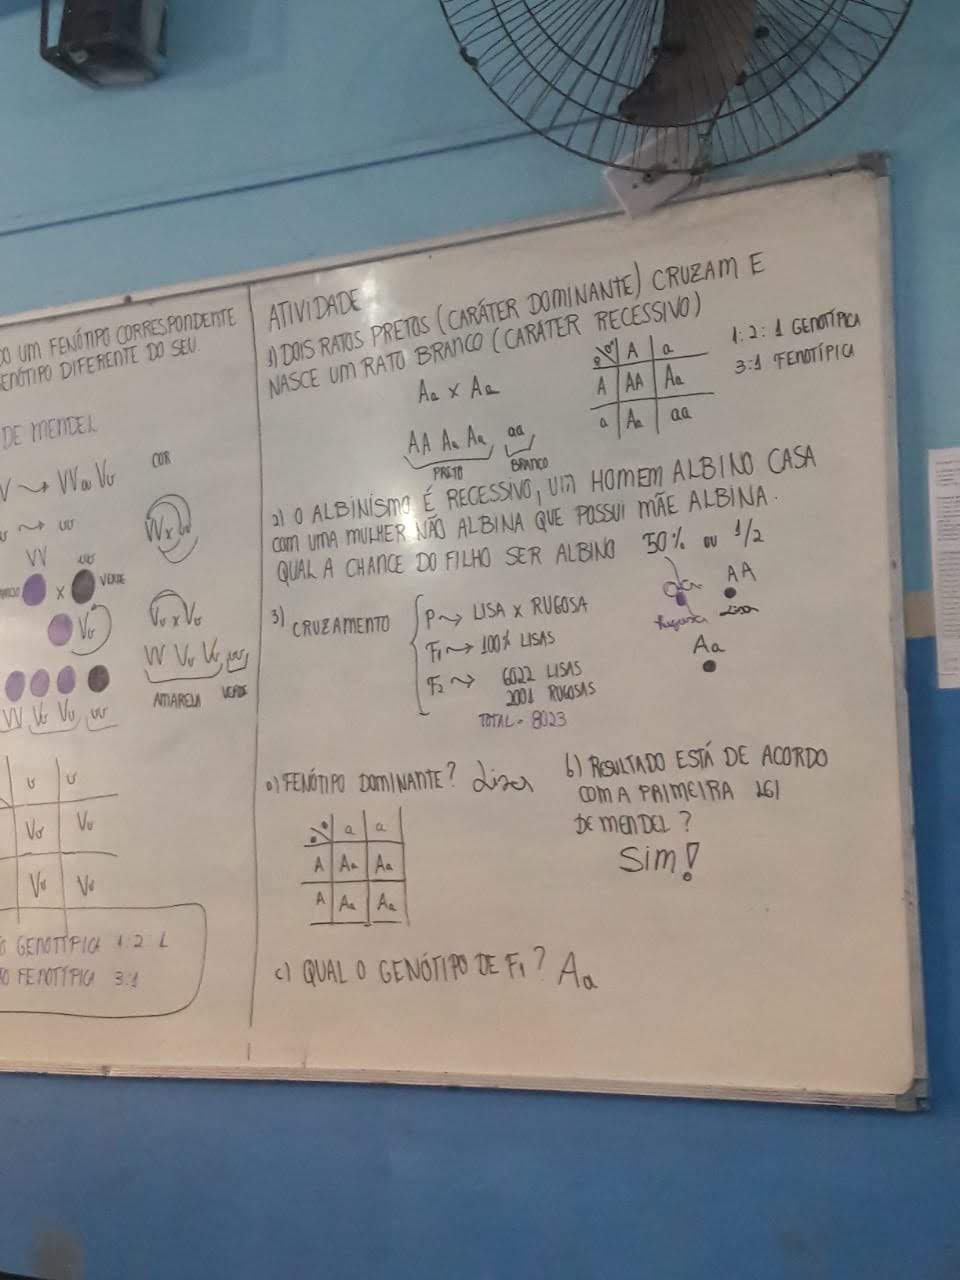 O UM FENÓTIPO CORRESPONDENTE
ENÓTIPO DIFERENTE DO SEU.
DE MENDEL
COR
VV
vv
VERDE
x
Vv
Vv x Vv
VV Vv Vv vv
AMARELA VERDE
VV Vv Vv vv
v v
Vv Vv
Vv Vv
GENOTÍPICA 1:2 1
FENOTÍPICA 3:1
ATIVIDADE
1) DOIS RATOS PRETOS (CARÁTER DOMINANTE) CRUZAM E
NASCE UM RATO BRANCO (CARÁTER RECESSIVO)
Aa x Aa
AA Aa Aa aa
PRETO BRANCO
A a
A AA Aa
a Aa aa
1:2:1 GENOTÍPICA
3:1 FENOTÍPICA
2) O ALBINISMO É RECESSIVO, UM HOMEM ALBINO CASA
COM UMA MULHER NÃO ALBINA QUE POSSUI MÃE ALBINA.
QUAL A CHANCE DO FILHO SER ALBINO 50% OU 1/2
3) CRUZAMENTO
P LISA X RUGOSA
F1 100% LISAS
F2 6022 LISAS
2001 RUGOSAS
TOTAL = 8023
AA
Rugosa Lisa
Aa
a) FENÓTIPO DOMINANTE? Lisa
a a
A Aa Aa
A Aa Aa
b) RESULTADO ESTÁ DE ACORDO
COM A PRIMEIRA LEI
DE MENDEL?
Sim!
c) QUAL O GENÓTIPO DE F1? Aa